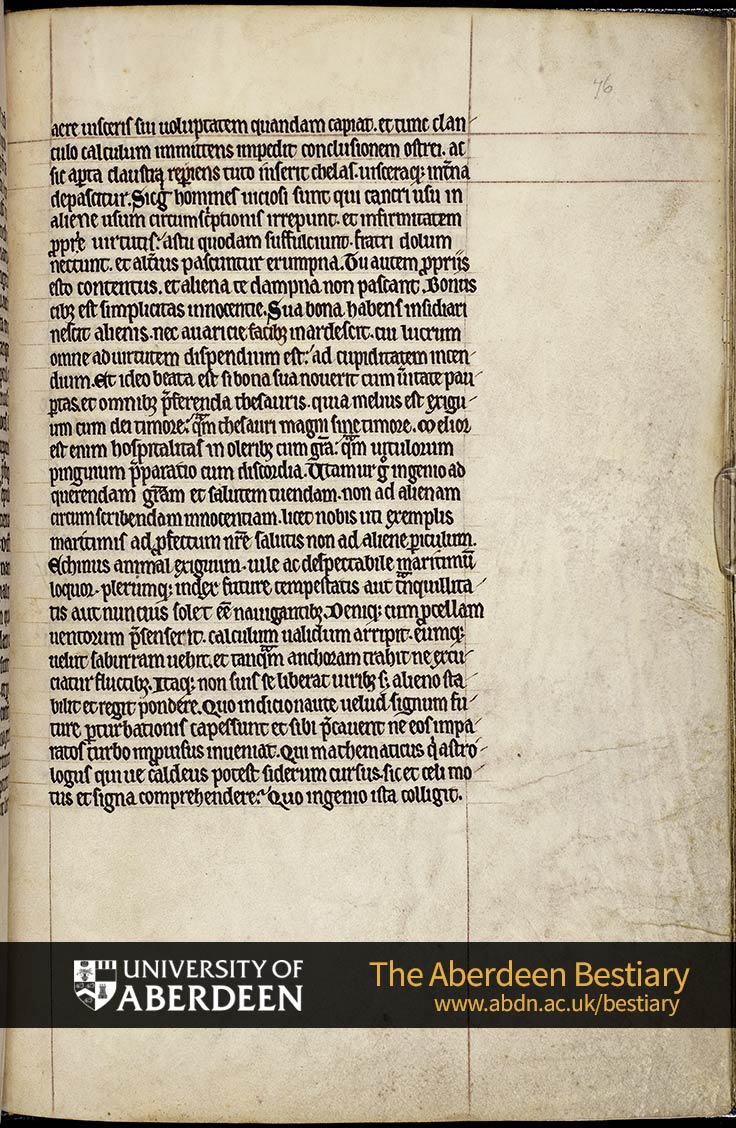 76
aere uisceris sui uoluptatem quandam capiat. et tunc clan
culo calculum immittens impedit conclusionem ostrei. ac
sic apta claustra repiens tuto inserit chelas. uisceraq; int̄na
depascitur. Sic g̓ homines uiciosi sunt qui cancri usu in
aliene usum circumsc̓ptionis irrepunt. et infirmitatem
ꝓpr̄e uirtutis: astu quodam suffulciunt. fratri dolum
nectunt. et alt̓ius pascuntur erumpna. Tu autem ꝓpriis
esto contentus. et aliena te dampna non pascant. Bonus
cibꝫ est simplicitas innocentie. Sua bona habens insidiari
nescit alienis. nec auaricie facibꝫ inardescit. cui lucrum
omne ad uirtutem dispendium est: ad cupiditatem incen
dium. Et ideo beata est si bona sua nouerit cum ūitate pau
ꝑtas. et omnibꝫ p̄ferenda thesauris. quia melius est exigu
um cum dei timore: qͣm thesauri magni sine timore. Melior
est enim hospitalitas in oleribꝫ cum gr̄a: qͣm uitulorum
pinguium p̄paratio cum discordia. Utamur g̊ ingenio ad
querendam gr̄am et salutem tuendam. non ad alienam
circumscribendam innocentiam. licet nobis uti exemplis
maritimis ad ꝓfectum nr̄e salutis non ad aliene ꝑiculum.
Echinus animal exiguum. uile ac despectabile maritimū
loquor. plerumq; index future tempestatis aut tͣnquillita
tis aut nuncius solet eē nauigantibꝫ. Deniq; cum ꝓcellam
uentorum p̄senserit. calculum ualidum arripit. eumq;
uelut saburram uehit. et tanqͣm anchoram trahit ne excu
ciatur fluctibꝫ. Itaq; non suis se liberat uiribꝫ s; alieno sta
bilit et regit pondere. Quo indicio naute uelud signum fu
ture ꝑturbationis capessunt et sibi p̄cauent ne eos impa
ratos turbo improuisus inueniat. Qui mathematicus q̓ astro
logus qui ue caldeus potest siderum cursus. sic et celi mo
tus et signa comprehendere: Quo ingenio ista colligit.
UNIVERSITY OF
ABERDEEN
The Aberdeen Bestiary
www.abdn.ac.uk/bestiary